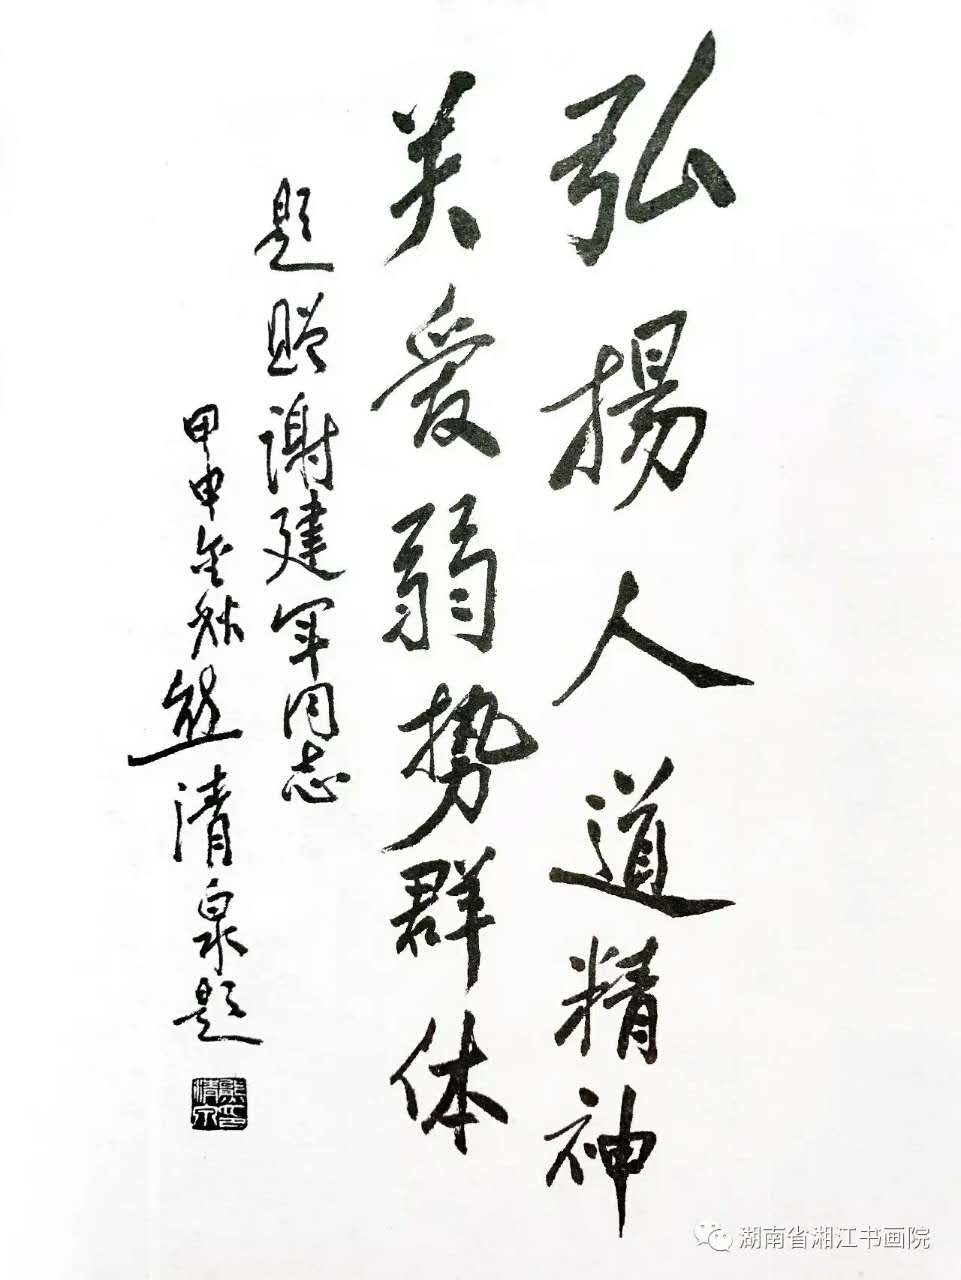 弘揚人道精神
关爱弱势群体
题赠谢建军同志
甲申金秋熊清泉题
熊清泉印
湖南省湘江书画院